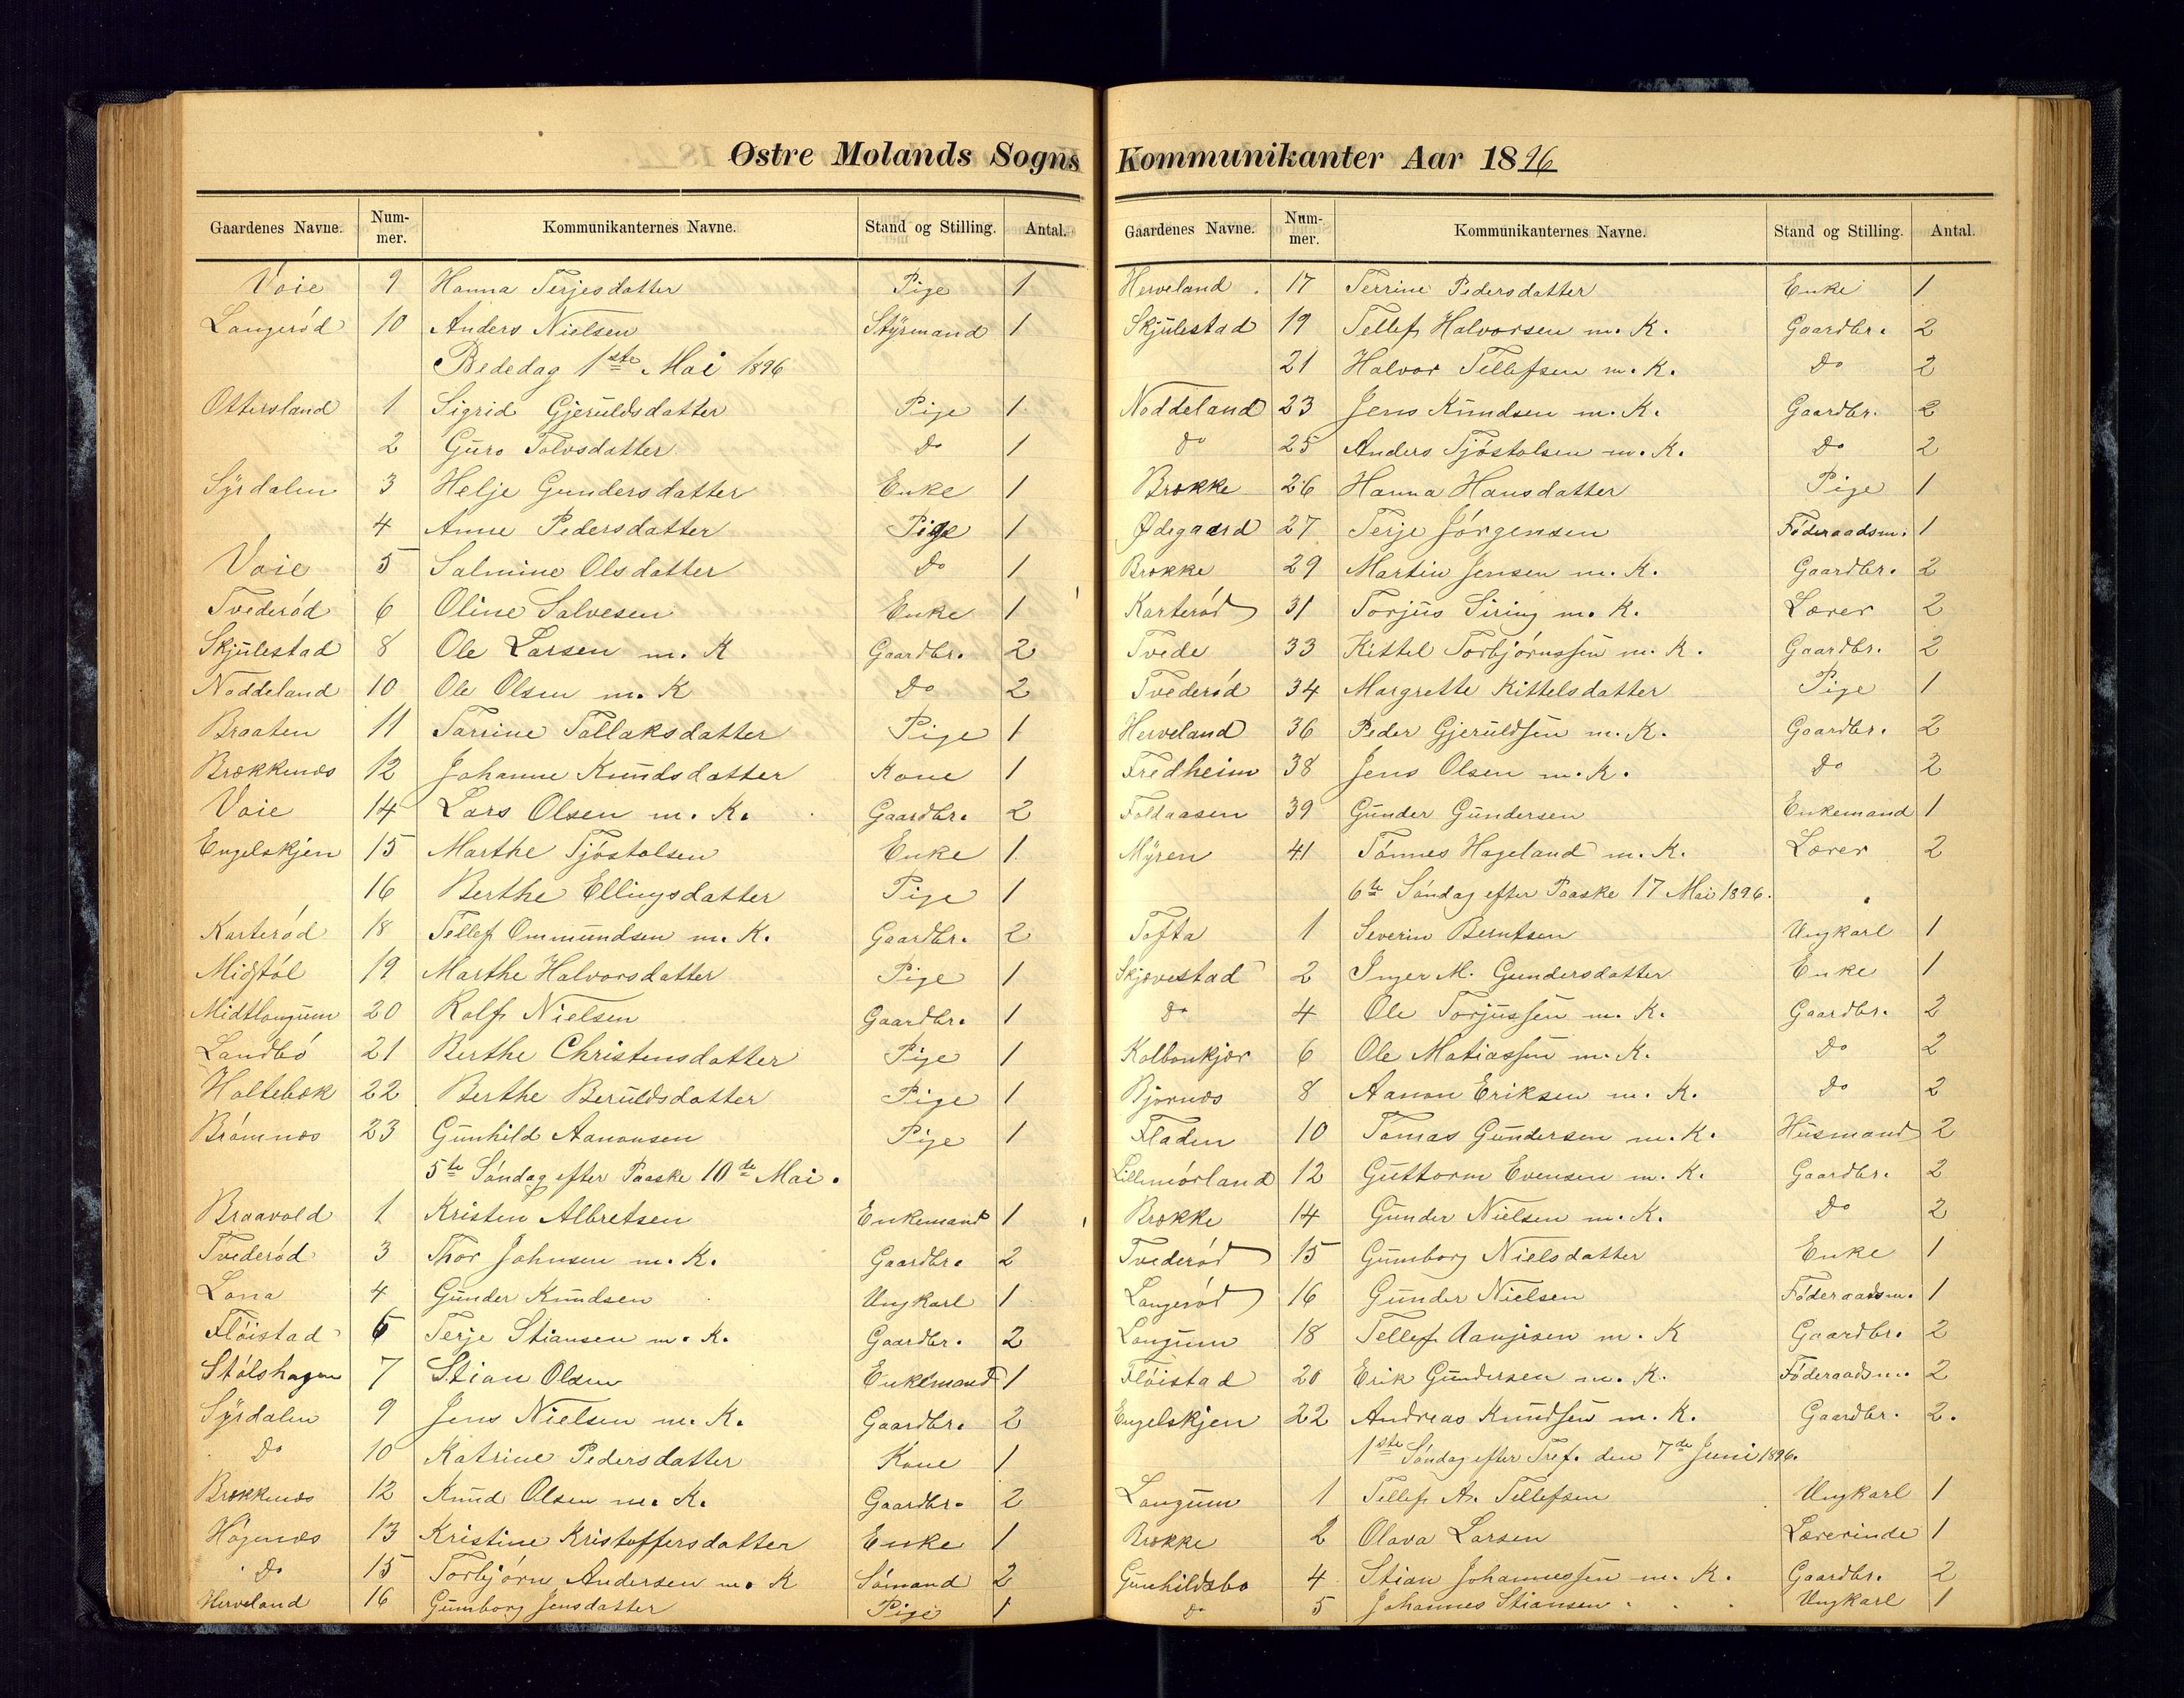 Østre Molands Sogns
Gaardenes Navne. Num-mer. Kommunikanternes Navne. Stand og Stilling. Antal.
Voie 9 Hanna Terjesdatter Pige 1
Langerød 10 Anders Nielsen Styrmand 1
Bededag 1ste Mai 1896
Ottersland 1 Sigrid Gjeruldsdatter Pige 1
2 Guro Tolvsdatter Do 1
Syrdalen 3 Helje Gundersdatter Enke 1
4 Anne Pedersdatter Pige 1
Voie 5 Salmine Olsdatter Do 1
Tvederød 6 Oline Salvesen Enke 1
Skjulestad 8 Ole Larsen m. K Gaardbr. 2
Noddeland 10 Ole Olsen m. K Do 2
Braaten 11 Tarrine Tallaksdatter Pige 1
Brækkenæs 12 Johanne Knudsdatter Kone 1
Voie 14 Lars Olsen m. K. Gaardbr. 2
Engelskjen 15 Marthe Tjøstolsen Enke 1
16 Berthe Ellingsdatter Pige 1
Karterød 18 Tellef Ommundsen m. K. Gaardbr. 2
Midtøl 19 Marthe Halvorsdatter Pige 1
Midtlangum 20 Rolf Nielsen Gaardbr. 1
Landbø 21 Berthe Christensdatter Pige 1
Holtebæk 22 Berthe Beruldsdatter Pige 1
Brømnæs 23 Gunhild Aanonsen Pige 1
5te Søndag efter Paaske 10de Mai.
Braavold 1 Kristen Albretsen Enkemand 1
Tvederød 3 Thor Johnsen m. K. Gaardbr. 2
Lona 4 Gunder Knudsen Ungkarl 1
Fløistad 6 Terje Stiansen m. K. Gaardbr. 2
Stølshagen 7 Stian Olsen Enkemand 1
Syrdalen 9 Jens Nielsen m. K. Gaardbr. 2
Do 10 Katrine Pedersdatter Kone 1
Brækkenæs 12 Knud Olsen m. K. Gaardbr. 2
Høgenæs 13 Kristine Kristoffersdatter Enke 1
Do 15 Torbjørn Andersen m. K Sømand 2
Herveland 16 Gumborg Jensdatter Pige 1
Kommunikanter Aar 1896
Gaardenes Navne. Num-mer. Kommunikanternes Navne. Stand og Stilling. Antal.
Herveland 17 Terrine Pedersdatter Enke 1
Skjulestad 19 Tellef Halvorsen m. K. Gaardbr. 2
21 Halvor Tellefsen m. K. Do 2
Noddeland 23 Jens Knudsen m. K. Gaardbr. 2
Do 25 Anders Tjøstolsen m. K. Do 2
Brække 26 Hanna Hansdatter Pige 1
Ødegaard 27 Terje Jørgensen Føderaadsm. 1
Brække 29 Martin Jensen m. K. Gaardbr. 2
Karterød 31 Torjus Siring m. K. Lærer 2
Tvede 33 Kittel Torbjørnssen m. K. Gaardbr. 2
Tvederød 34 Margrette Kittelsdatter Pige 1
Herveland 36 Peder Gjeruldsen m. K. Gaardbr. 2
Fredheim 38 Jens Olsen m. K. Do 2
Foldaasen 39 Gunder Gundersen Enkemand 1
Myren 41 Tønnes Hageland m. K. Lærer 2
6te Søndag efter Paaske 17 Mai 1896.
Tofta 1 Severin Berntsen Ungkarl 1
Skjævestad 2 Inger M. Gundersdatter Enke 1
Do 4 Ole Torjussen m. K. Gaardbr. 2
Kolbonkjær 6 Ole Matiassen m. K. Do 2
Bjørnæs 8 Aanon Eriksen m. K. Do 2
Fladen 10 Tomas Gundersen m. K. Husmand 2
Lillemørland 12 Guttorm Evensen m. K. Gaardbr. 2
Brække 14 Gunder Nielsen m. K. Do 2
Tvederød 15 Gumborg Nielsdatter Enke 1
Langerød 16 Gunder Nielsen Føderaadsm. 1
Langum 18 Tellef Aanjesen m. K Gaardbr. 2
Fløistad 20 Erik Gundersen m. K. Føderaadsm. 2
Engelskjen 22 Andreas Knudsen m. K. Gaardbr. 2.
1ste Søndag efter Tref. den 7de Juni 1896.
Langum 1 Tellef A. Tellefsen Ungkarl 1
Brække 2 Olava Larsen Lærerinde 1
Gunhildsbo 4 Stian Johannessen m. K. Gaardbr. 2
Do 5 Johannes Stiansen Ungkarl 1